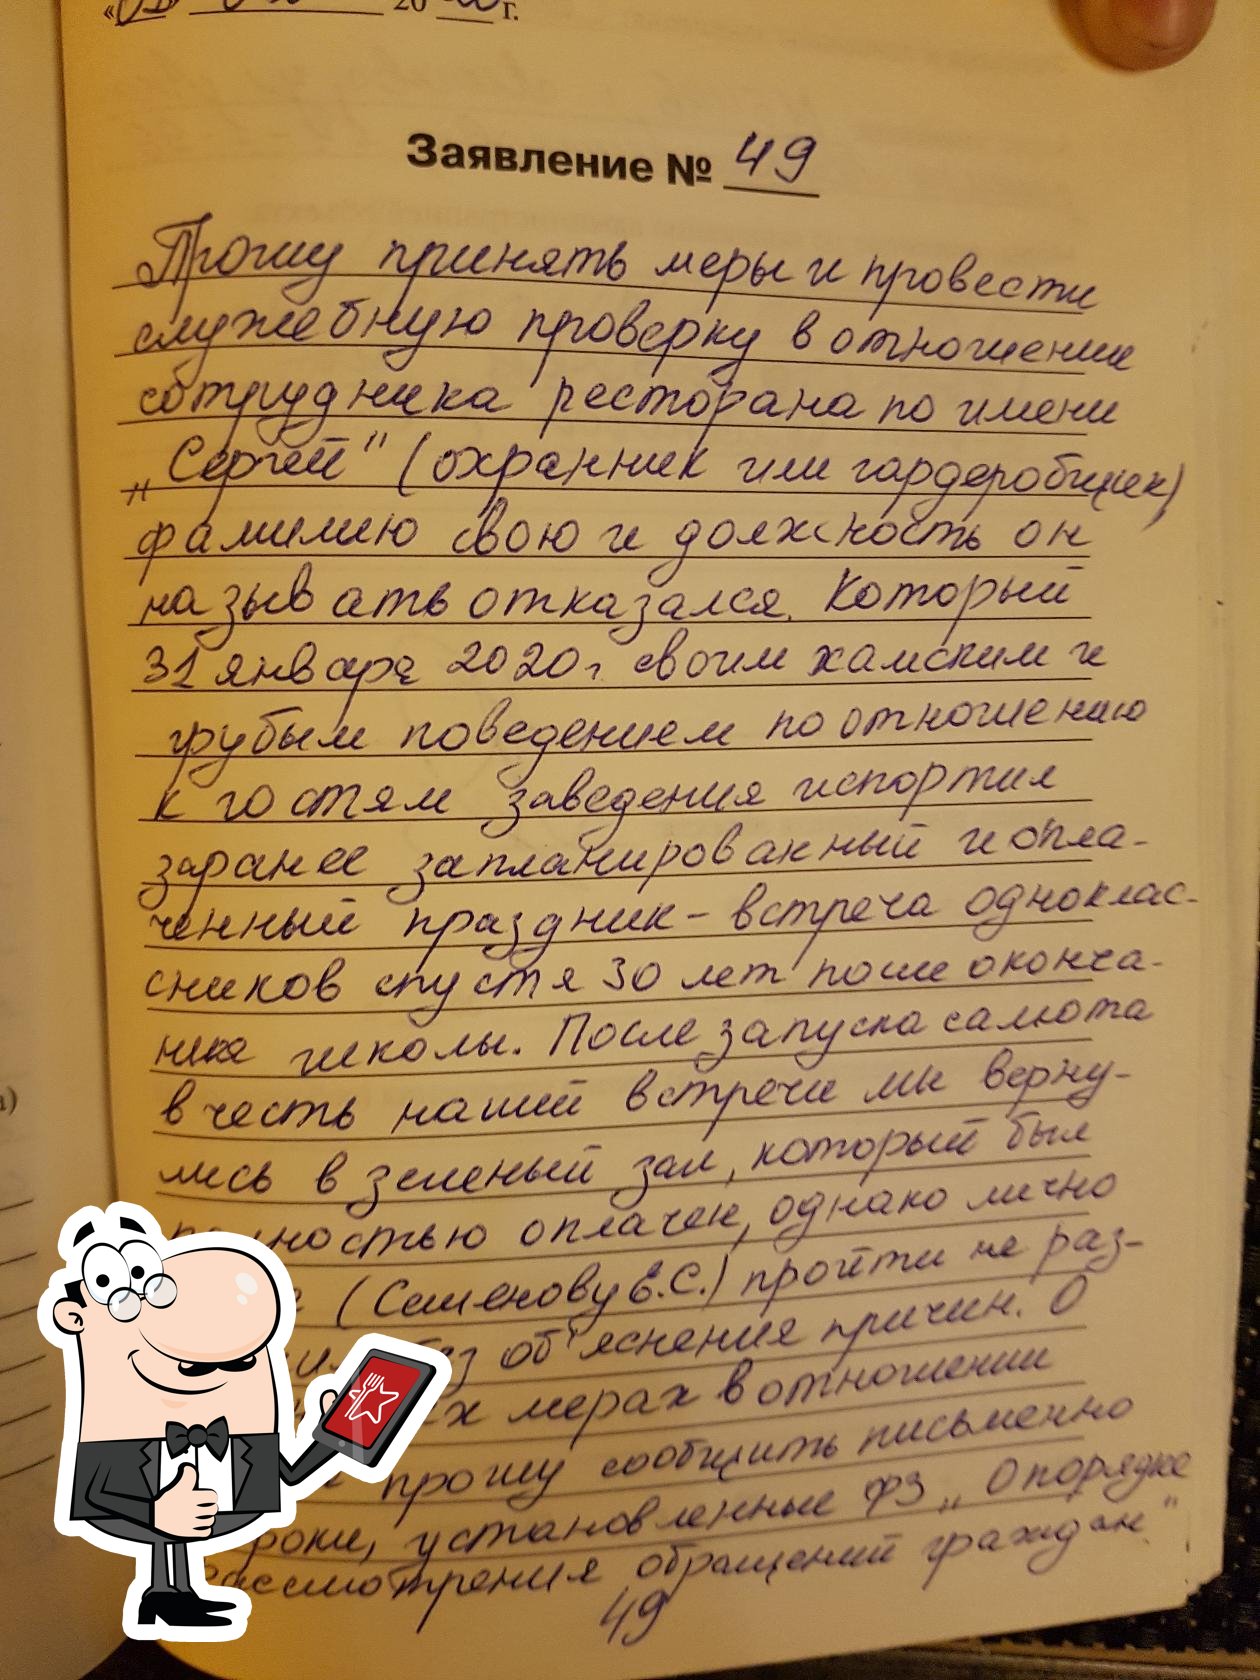 20 г.
Заявление № 49
Прошу принять меры и провести
служебную проверку в отношении
сотрудника ресторана по имени
„Сергей" (охранник или гардеробщик)
фамилию свою и должность он
называть отказался. Который
31 января 2020г своим хамским и
грубым поведением по отношению
к гостям заведения испортил
заранее запланированный и опла-
ченный праздник - встреча одноклас-
сников спустя 30 лет после оконча-
ния школы. После запуска салюта
в честь нашей встречи мы верну-
лись в зеленый зал, который был
оплачен, однако лично
(Семенову Е.С.) пройти не раз-
об'яснения причин. О
мерах в отношении
прошу сообщить письменно
установленные ФЗ „О порядке
рассмотрения обращений граждан"
49